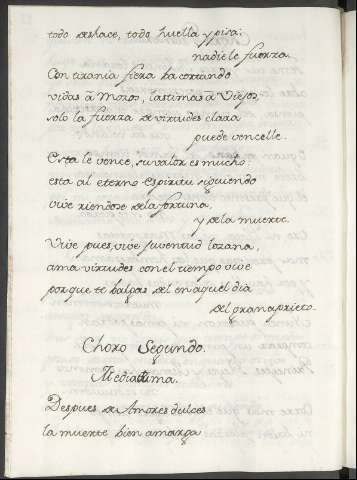 todo deshace, todo huella y pisa;
nadie le fuerza.
Con tirania fiera ha cortando
vidas â Mozos, lastimas â Viejos,
solo la fuerza de virtudes clara
puede vencelle.
Esta le vence, su valor es mucho:
esta al eterno Espiritu siguiendo
vive riendose de la fortuna,
y de la muerte.
Vive pues, vive juventud lozana,
ama virtudes con el tiempo vive
por que te balgas del en aquel dia
del gran aprieto.
Choro Segundo.
Mediatima.
Despues de Amores dulces
la muerte bien amarga